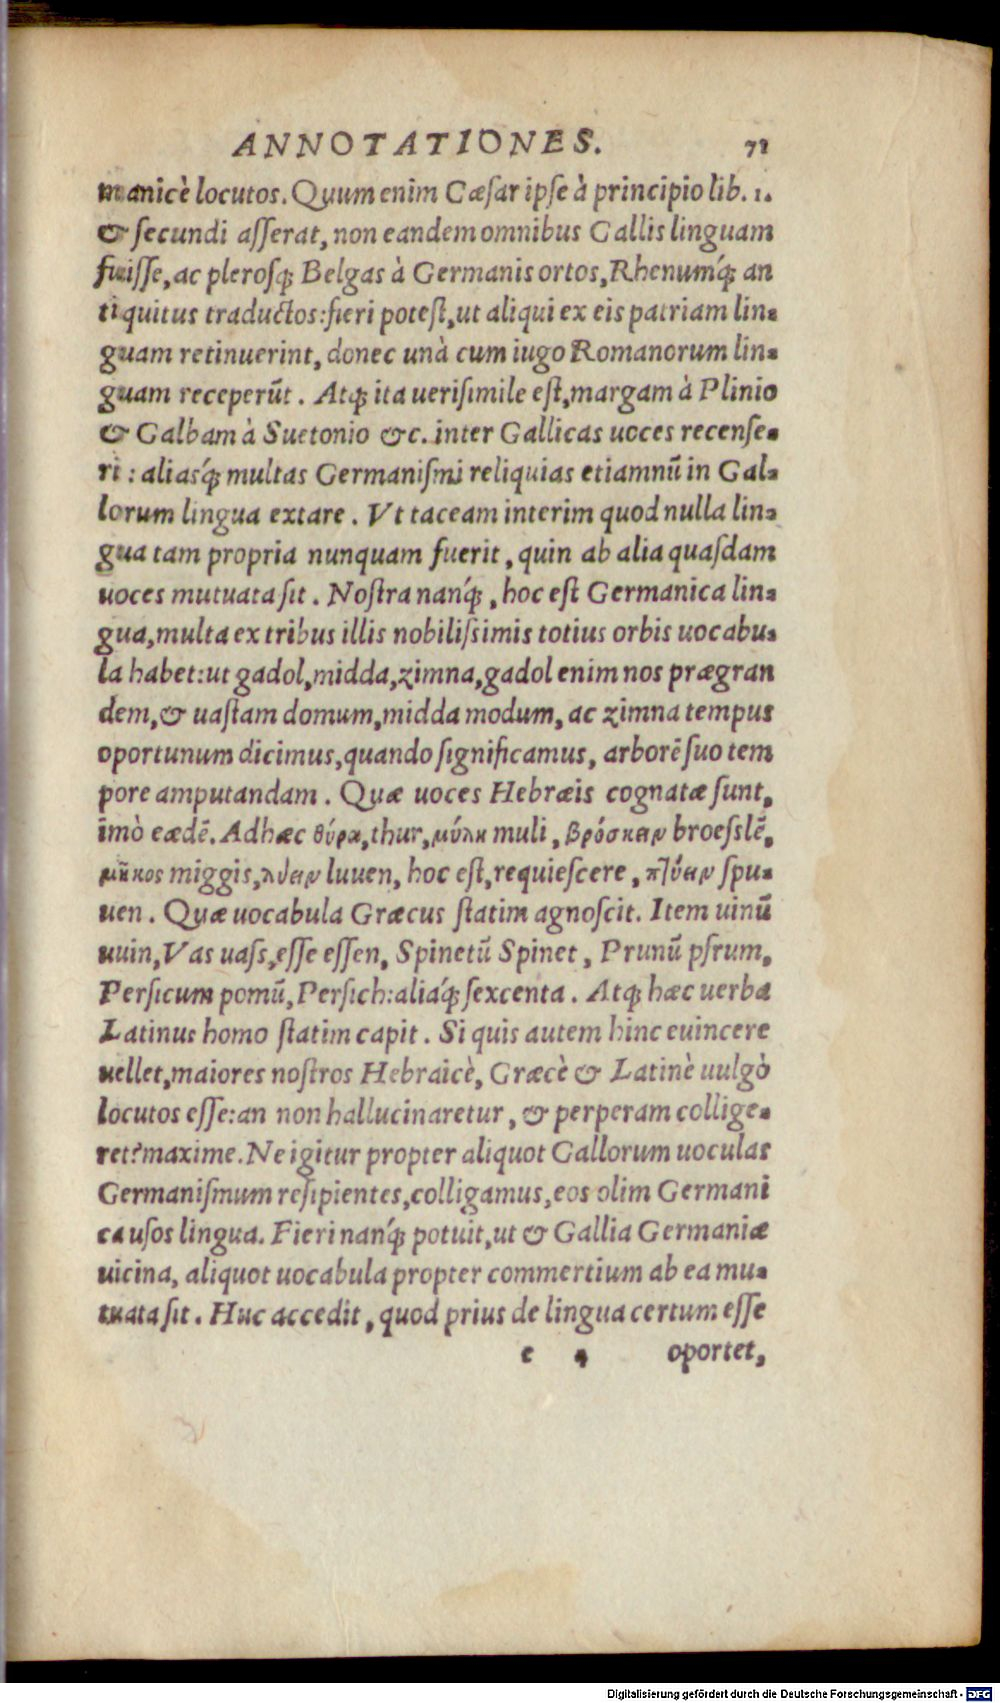 ANNOTATIONES. 71
manicè locutos. Quum enim Cæſar ipſe à principio lib. 1.
& ſecundi aſſerat, non eandem omnibus Gallis linguam
fuiſſe, ac pleroſq́; Belgas à Germanis ortos, Rhenumq́; an
tiquitus traductos: fieri poteſt, ut aliqui ex eis patriam lin-
guam retinuerint, donec unà cum iugo Romanorum lin-
guam receperũt. Atq; ita ueriſimile eſt, margam à Plinio
& Galbam à Suetonio &c. inter Gallicas uoces recenſe-
ri: aliasq́; multas Germaniſmi reliquias etiamnũ in Gal-
lorum lingua extare. Vt taceam interim quod nulla lin-
gua tam propria nunquam fuerit, quin ab alia quaſdam
uoces mutuata ſit. Noſtra nanq́;, hoc eſt Germanica lin-
gua, multa ex tribus illis nobiliſsimis totius orbis uocabu-
la habet: ut gadol, midda, zimna, gadol enim nos prægran
dem, & uaſtam domum, midda modum, ac zimna tempus
oportunum dicimus, quando ſignificamus, arborẽ ſuo tem
pore amputandam. Quæ uoces Hebræis cognatæ ſunt,
imò eædẽ. Ad hæc θύρα, thur, μύλη muli, βρόσκειν broeſslẽ,
μῆκος miggis, λύειν luuen, hoc eſt, requieſcere, πτύειν ſpu-
uen. Quæ uocabula Græcus ſtatim agnoſcit. Item uinũ
uuin, Vas uaſs, eſſe eſſen, Spinetũ Spinet, Prunũ pſrum,
Perſicum pomũ, Perſich: aliáq; ſexcenta. Atq; hæc uerba
Latinus homo ſtatim capit. Si quis autem hinc euincere
uellet, maiores noſtros Hebraicè, Græcè & Latinè uulgò
locutos eſſe: an non hallucinaretur, & perperam collige-
ret? maxime. Ne igitur propter aliquot Gallorum uoculas
Germaniſmum reſipientes, colligamus, eos olim Germani
ca uſos lingua. Fieri nanq́; potuit, ut & Gallia Germaniæ
uicina, aliquot uocabula propter commertium ab ea mu-
tuata ſit. Huc accedit, quod prius de lingua certum eſſe
e 4 oportet,
Digitalisierung gefördert durch die Deutsche Forschungsgemeinschaft - DFG